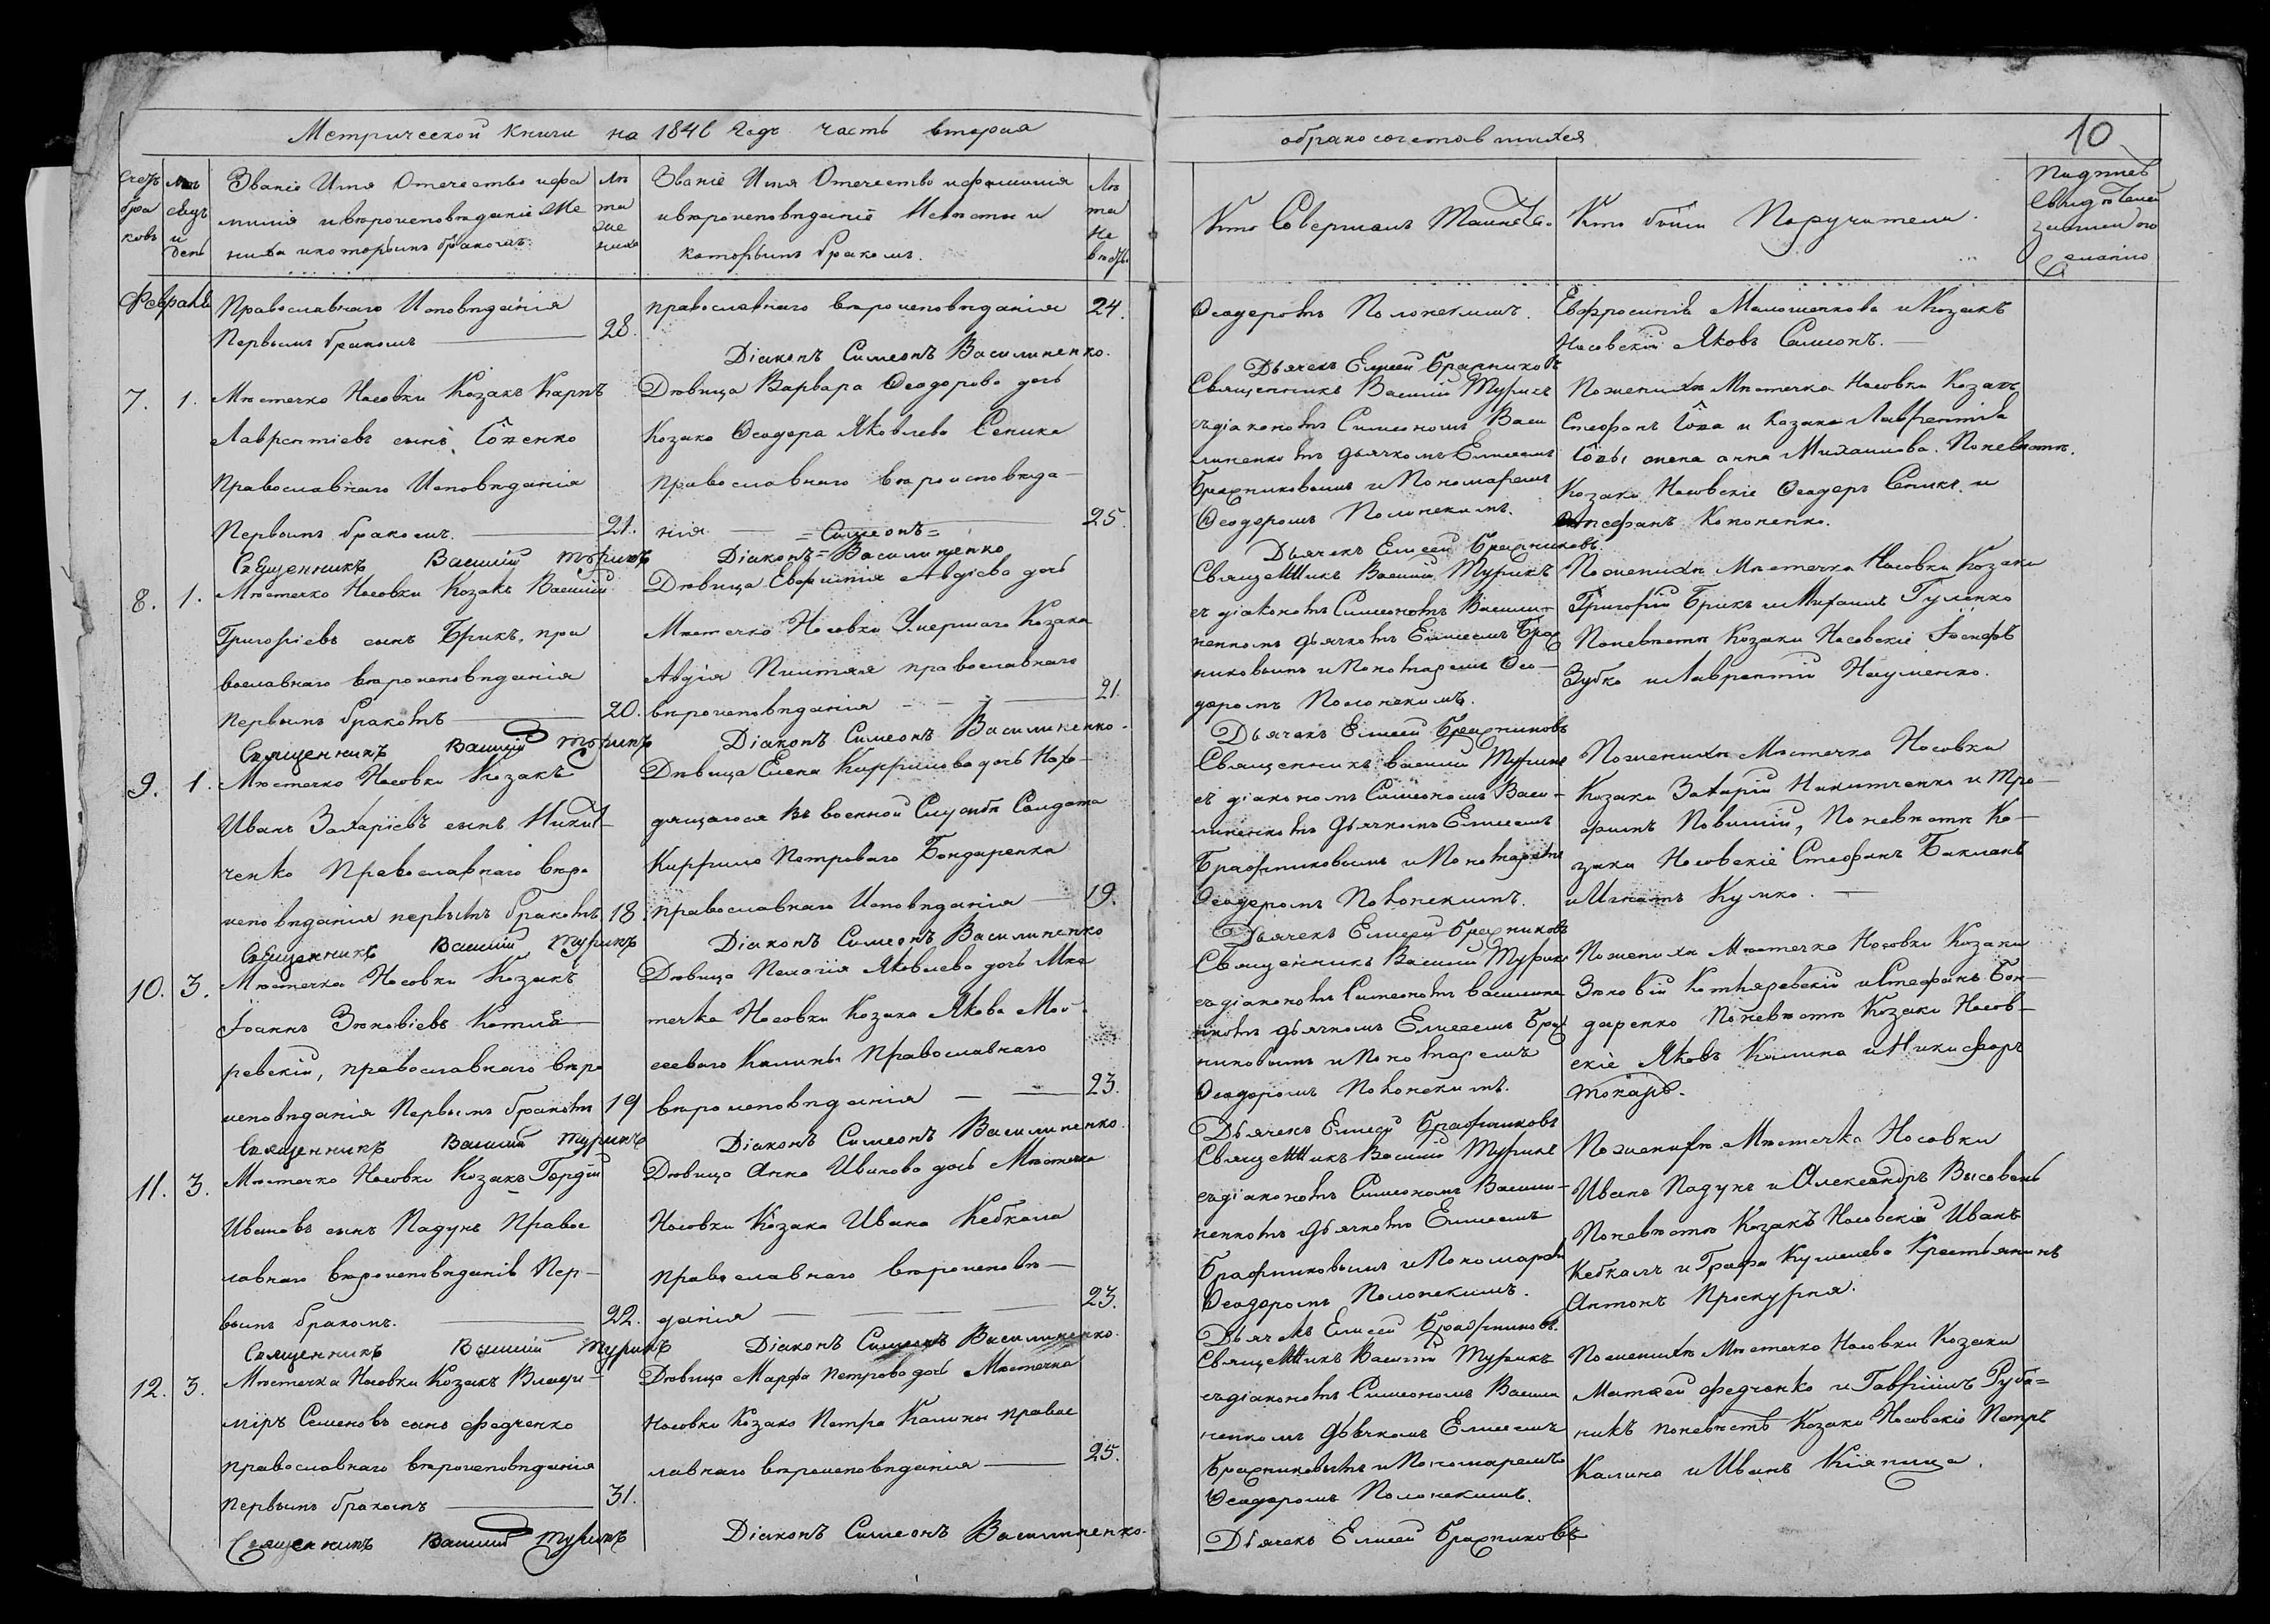 Метрической книги на 184 годъ часть вторая
о бракосочетавшихся
10
Счетъ браковъ
Мѣсяцъ и день
Званіе Имя Отечество и фа
милія и вѣроисповѣданіе Же
ниха и которымъ бракомъ.
Лѣта жениха
Званіе Имя Отечество и фамилія
и вѣроисповѣданіе Невѣсты и
которымъ бракомъ.
Лѣта невѣсты
Кто Совершалъ Таинство
Кто были Поручители.
Февраль
Православнаго Исповѣданія
Первымъ бракомъ 28.
православнаго вѣроисповѣданія 24.
Діаконъ Симеонъ Василиненко.
Ѳеодоромъ Полонскимъ.
Дьячекъ Елисей Бражниковъ
Евфросинія Малошенкова и Козакъ
Носовскій Яковъ Самсонъ.
7. 1.
Мѣстечка Носовки Козакъ Карпъ
Лаврентіевъ сынъ
Православнаго Исповѣданія
Первымъ бракомъ. 21.
Священникъ Василій Турикъ
Дѣвица Варвара Ѳеодорова дочь
Козака Ѳеодора Яковлева Сеника
Православнаго вѣроисповѣда-
нія 25.
=Симеонъ=
Діаконъ=Василиненко
Священникъ Василій Турикъ
съ діакономъ Симеономъ Васи
линенкомъ дьячкомъ Елисеемъ
Бражниковымъ и Пономаремъ
Ѳеодоромъ Полонскимъ.
Дьячекъ Елисей Бражниковъ.
По женихѣ Мѣстечка Носовки Козакъ
Стефанъ и Козака Лаврентія
жена Анна Михаилова. По невѣстѣ.
Козаки Носовскіе Ѳеодоръ Сеникъ и
Стефанъ Кононенко.
8. 1.
Мѣстечка Носовки Козакъ Василій
Григоріевъ сынъ Брикъ, пра
вославнаго вѣроисповѣданія
первымъ бракомъ 20.
Священникъ Василій Турикъ
Дѣвица Евфимія Авдіева дочь
Мѣстечка Носовки Умершаго Козака
Авдія православнаго
вѣроисповѣданія 21.
Діаконъ Симеонъ Василиненко.
Священникъ Василій Турикъ
съ діакономъ Симеономъ Васили-
ненкомъ дьячкомъ Елисеемъ Браж
никовымъ и Пономаремъ Ѳео-
доромъ Полонскимъ.
Дьячекъ Елисей Бражниковъ
По женихѣ Мѣстечка Носовки Козаки
Григорій Брикъ и Михаилъ Гуленко
По невѣстѣ Козаки Носовскіе Іосифъ
Зубко и Лаврентій Науменко.
9. 1.
Мѣстечка Носовки Козакъ
Иванъ Захаріевъ сынъ Никит-
ченко Православнаго вѣро
исповѣданія первымъ бракомъ 18
Священникъ Василій Турикъ
Дѣвица Елена Кирилова дочь Нахо-
дящагося въ военной Службѣ Солдата
Кирила Петроваго Бондаренка
православнаго Исповѣданія 19.
Діаконъ Симеонъ Василиненко
Священникъ Василій Турикъ
съ діакономъ Симеономъ Васи-
линенкомъ дьячкомъ Елисеемъ
Бражниковымъ и Пономаремъ
Ѳеодоромъ Полонскимъ.
Дьячекъ Елисей Бражниковъ
По женихѣ Мѣстечка Носовки
Козаки Захарій Никитченко и Тро-
фимъ, По невѣстѣ Ко-
заки Носовскіе Стефанъ Бакланъ
и Игнатъ Кумко.
10. 3.
Мѣстечка Носовки Козакъ
Іоаннъ Зѣновіевъ Котля-
ревскій, православнаго вѣро
исповѣданія Первымъ бракомъ 19
Священникъ Василій Турикъ
Дѣвица Пелагія Яковлева дочь Мѣс
течка Носовки Козака Якова Мой-
сеевого Калины Православнаго
вѣроисповѣданія 23.
Діаконъ Симеонъ Василиненко.
Священникъ Василій Турикъ
съ діакономъ Симеономъ Василине
нкомъ дьячкомъ Елисеемъ Браж
никовымъ и Пономаремъ
Ѳеодоромъ Полонскимъ.
Дьячекъ Елисей Бражниковъ
По женихѣ Мѣстечка Носовки Козаки
Зѣновій Котляревскій и Стефанъ Бон-
даренко По невѣстѣ Козаки Носов-
скіе Яковъ Калина и Никифоръ
Токарь.
11. 3.
Мѣстечка Носовки Козакъ Гордій
Ивановъ сынъ Падунъ Правос
лавнаго вѣроисповѣданія Пер-
вымъ бракомъ. 22.
Священникъ Василій Турикъ
Дѣвица Анна Иванова дочь Мѣстечка
Носовки Козака Ивана Кебкала
православнаго вѣроисповѣ-
данія 23.
Діаконъ Симеонъ Василиненко.
Священникъ Василій Турикъ
съ діакономъ Симеономъ Васили-
ненкомъ дьячкомъ Елисеемъ
Бражниковымъ и Пономаремъ
Ѳеодоромъ Полонскимъ.
Дьячекъ Елисей Бражниковъ.
По женихѣ Мѣстечка Носовки
Иванъ Падунъ и Александръ Высовень
По невѣстѣ Козакъ Носовскій Иванъ
Кебкалъ и Графа Кушелева Крестьянинъ
Антонъ Проскурня.
12. 3.
Мѣстечка Носовки Козакъ Влади-
міръ Семеновъ сынъ Федченко
православнаго вѣроисповѣданія
Первымъ бракомъ 31.
Священникъ Василій Турикъ
Дѣвица Марфа Петрова дочь Мѣстечка
Носовки Козака Петра Калины правос
лавнаго вѣроисповѣданія 25.
Діаконъ Симеонъ Василиненко.
Священникъ Василій Турикъ
съ діакономъ Симеономъ Васили
ненкомъ дьячкомъ Елисеемъ
Бражниковымъ и Пономаремъ
Ѳеодоромъ Полонскимъ.
Дьячекъ Елисей Бражниковъ
По женихѣ Мѣстечка Носовки Козаки
Матвей Федченко и Гавріилъ Руба=
никъ по невѣстѣ Козаки Носовскіе Петръ
Калина и Иванъ Кіяница.